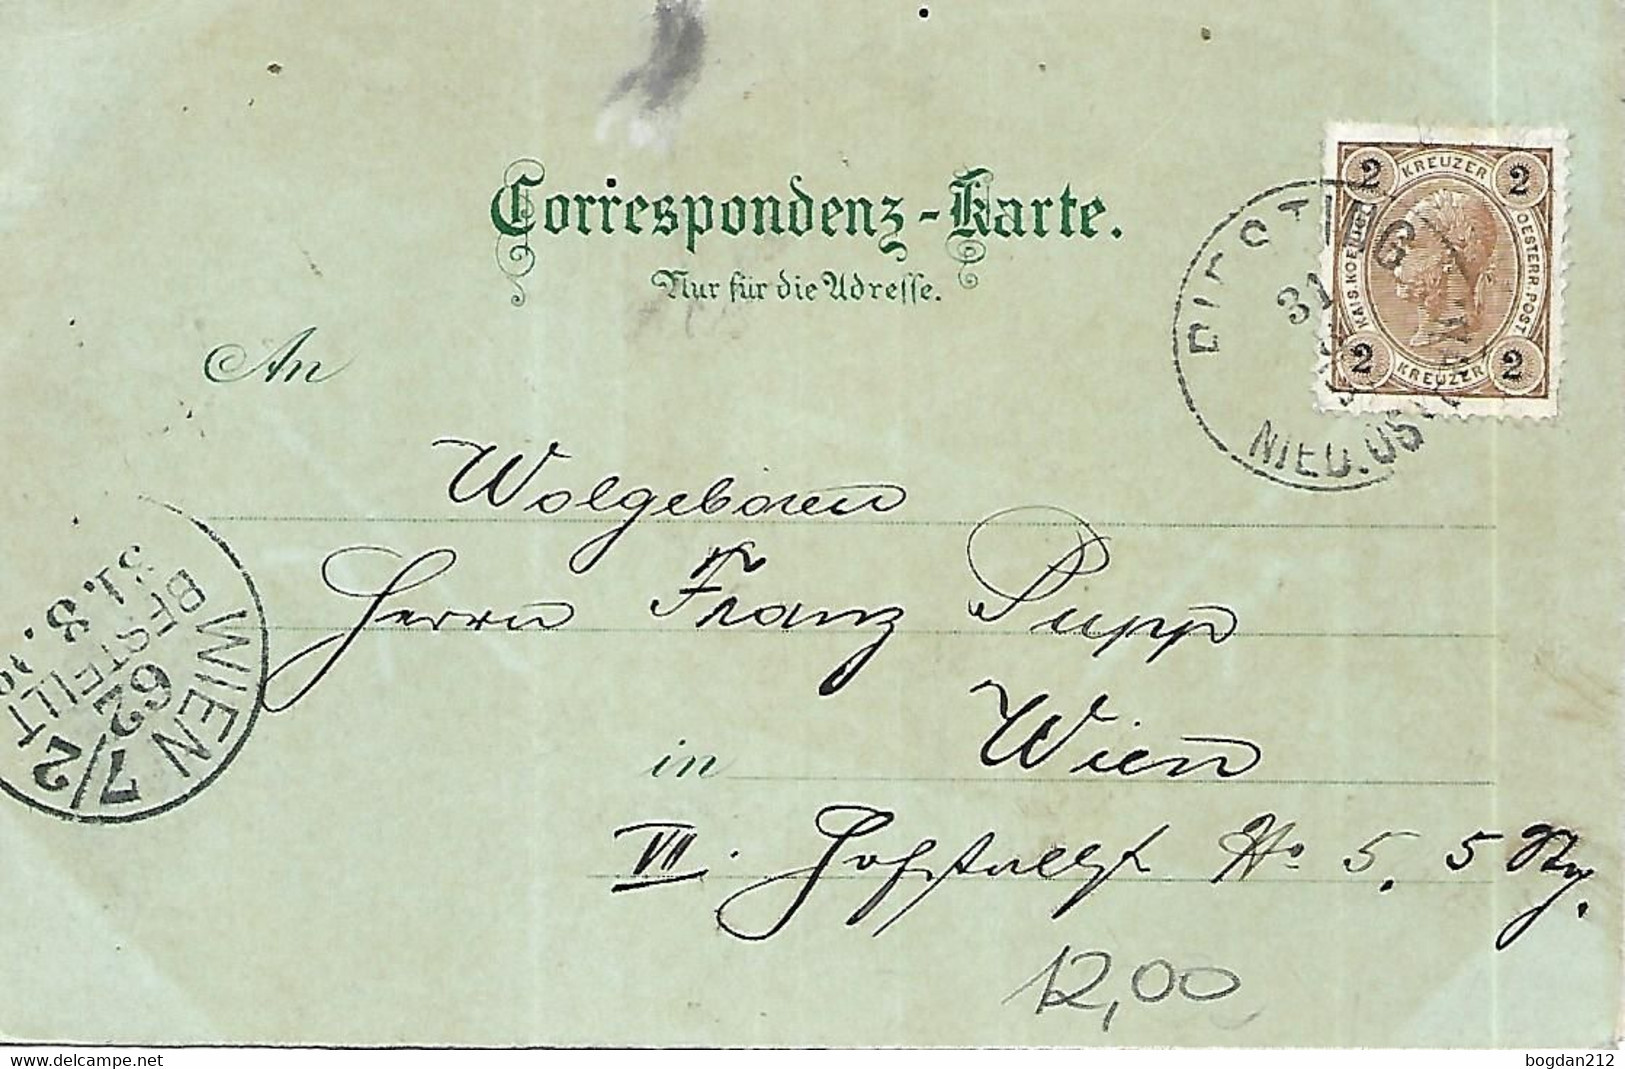 Correspondenz-Karte.
Nur für die Adresse.
2 KREUZER 2
KAIS. KOENIGL. OESTERR. POST.
2 KREUZER 2
31
NIED. ÖST
An
Wolgeboren
Herrn Franz Pupp
in Wien
VII. Hofstallst No 5, 5
WIEN 7/2
62
BESTELLT
31. 8.
12,00
delcampe.net
bogdan212